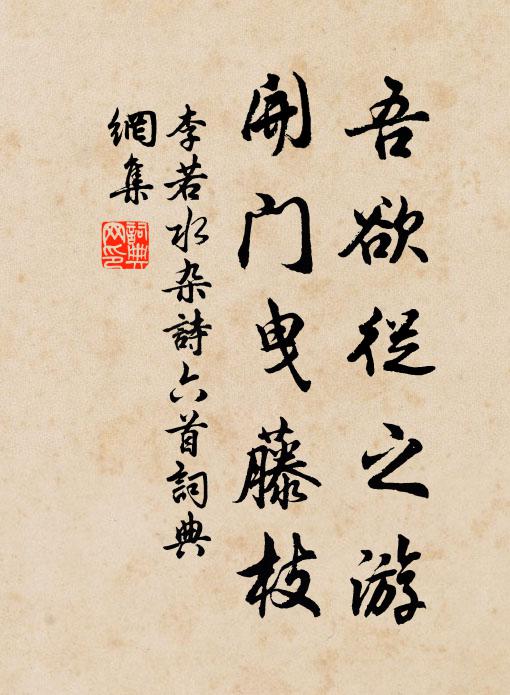 吾欲從之游
開门曳藤枝
李若水杂詩六首詞典
網集
詞典网印